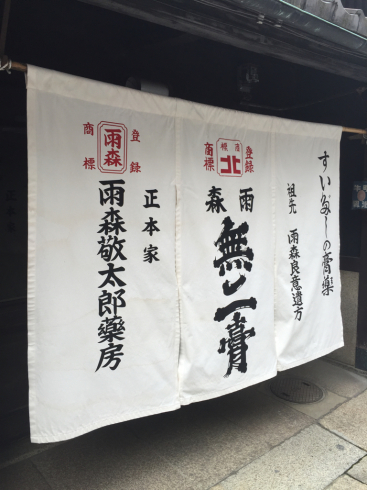 すいだしの膏藥
祖先 雨森良意遺方
登録
商標
北
雨森
無二膏
登録
商標
雨森
正本家
雨森敬太郎藥房